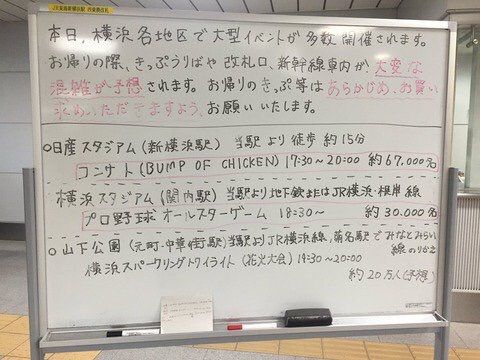 JR東海新横浜駅 西乗換改札
本日、横浜各地区で大型イベントが多数開催されます。
お帰りの際、きっぷうりばや改札口、新幹線車内が大変な
混雑が予想されます。お帰りのきっぷ等はあらかじめ、お買い
求めいただきますよう、お願いいたします。
○日産スタジアム(新横浜駅) 当駅より徒歩約15分
コンサート(BUMP OF CHICKEN) 17:30～20:00 約67,000名
横浜スタジアム(関内駅) 当駅より地下鉄またはJR横浜・根岸線
プロ野球オールスターゲーム 18:30～ 約30,000名
○山下公園(元町・中華街駅)当駅よりJR横浜線,菊名駅でみなとみらい
線のりかえ
横浜スパークリングトワイライト(花火大会) 19:30～20:00
約20万人(予想)